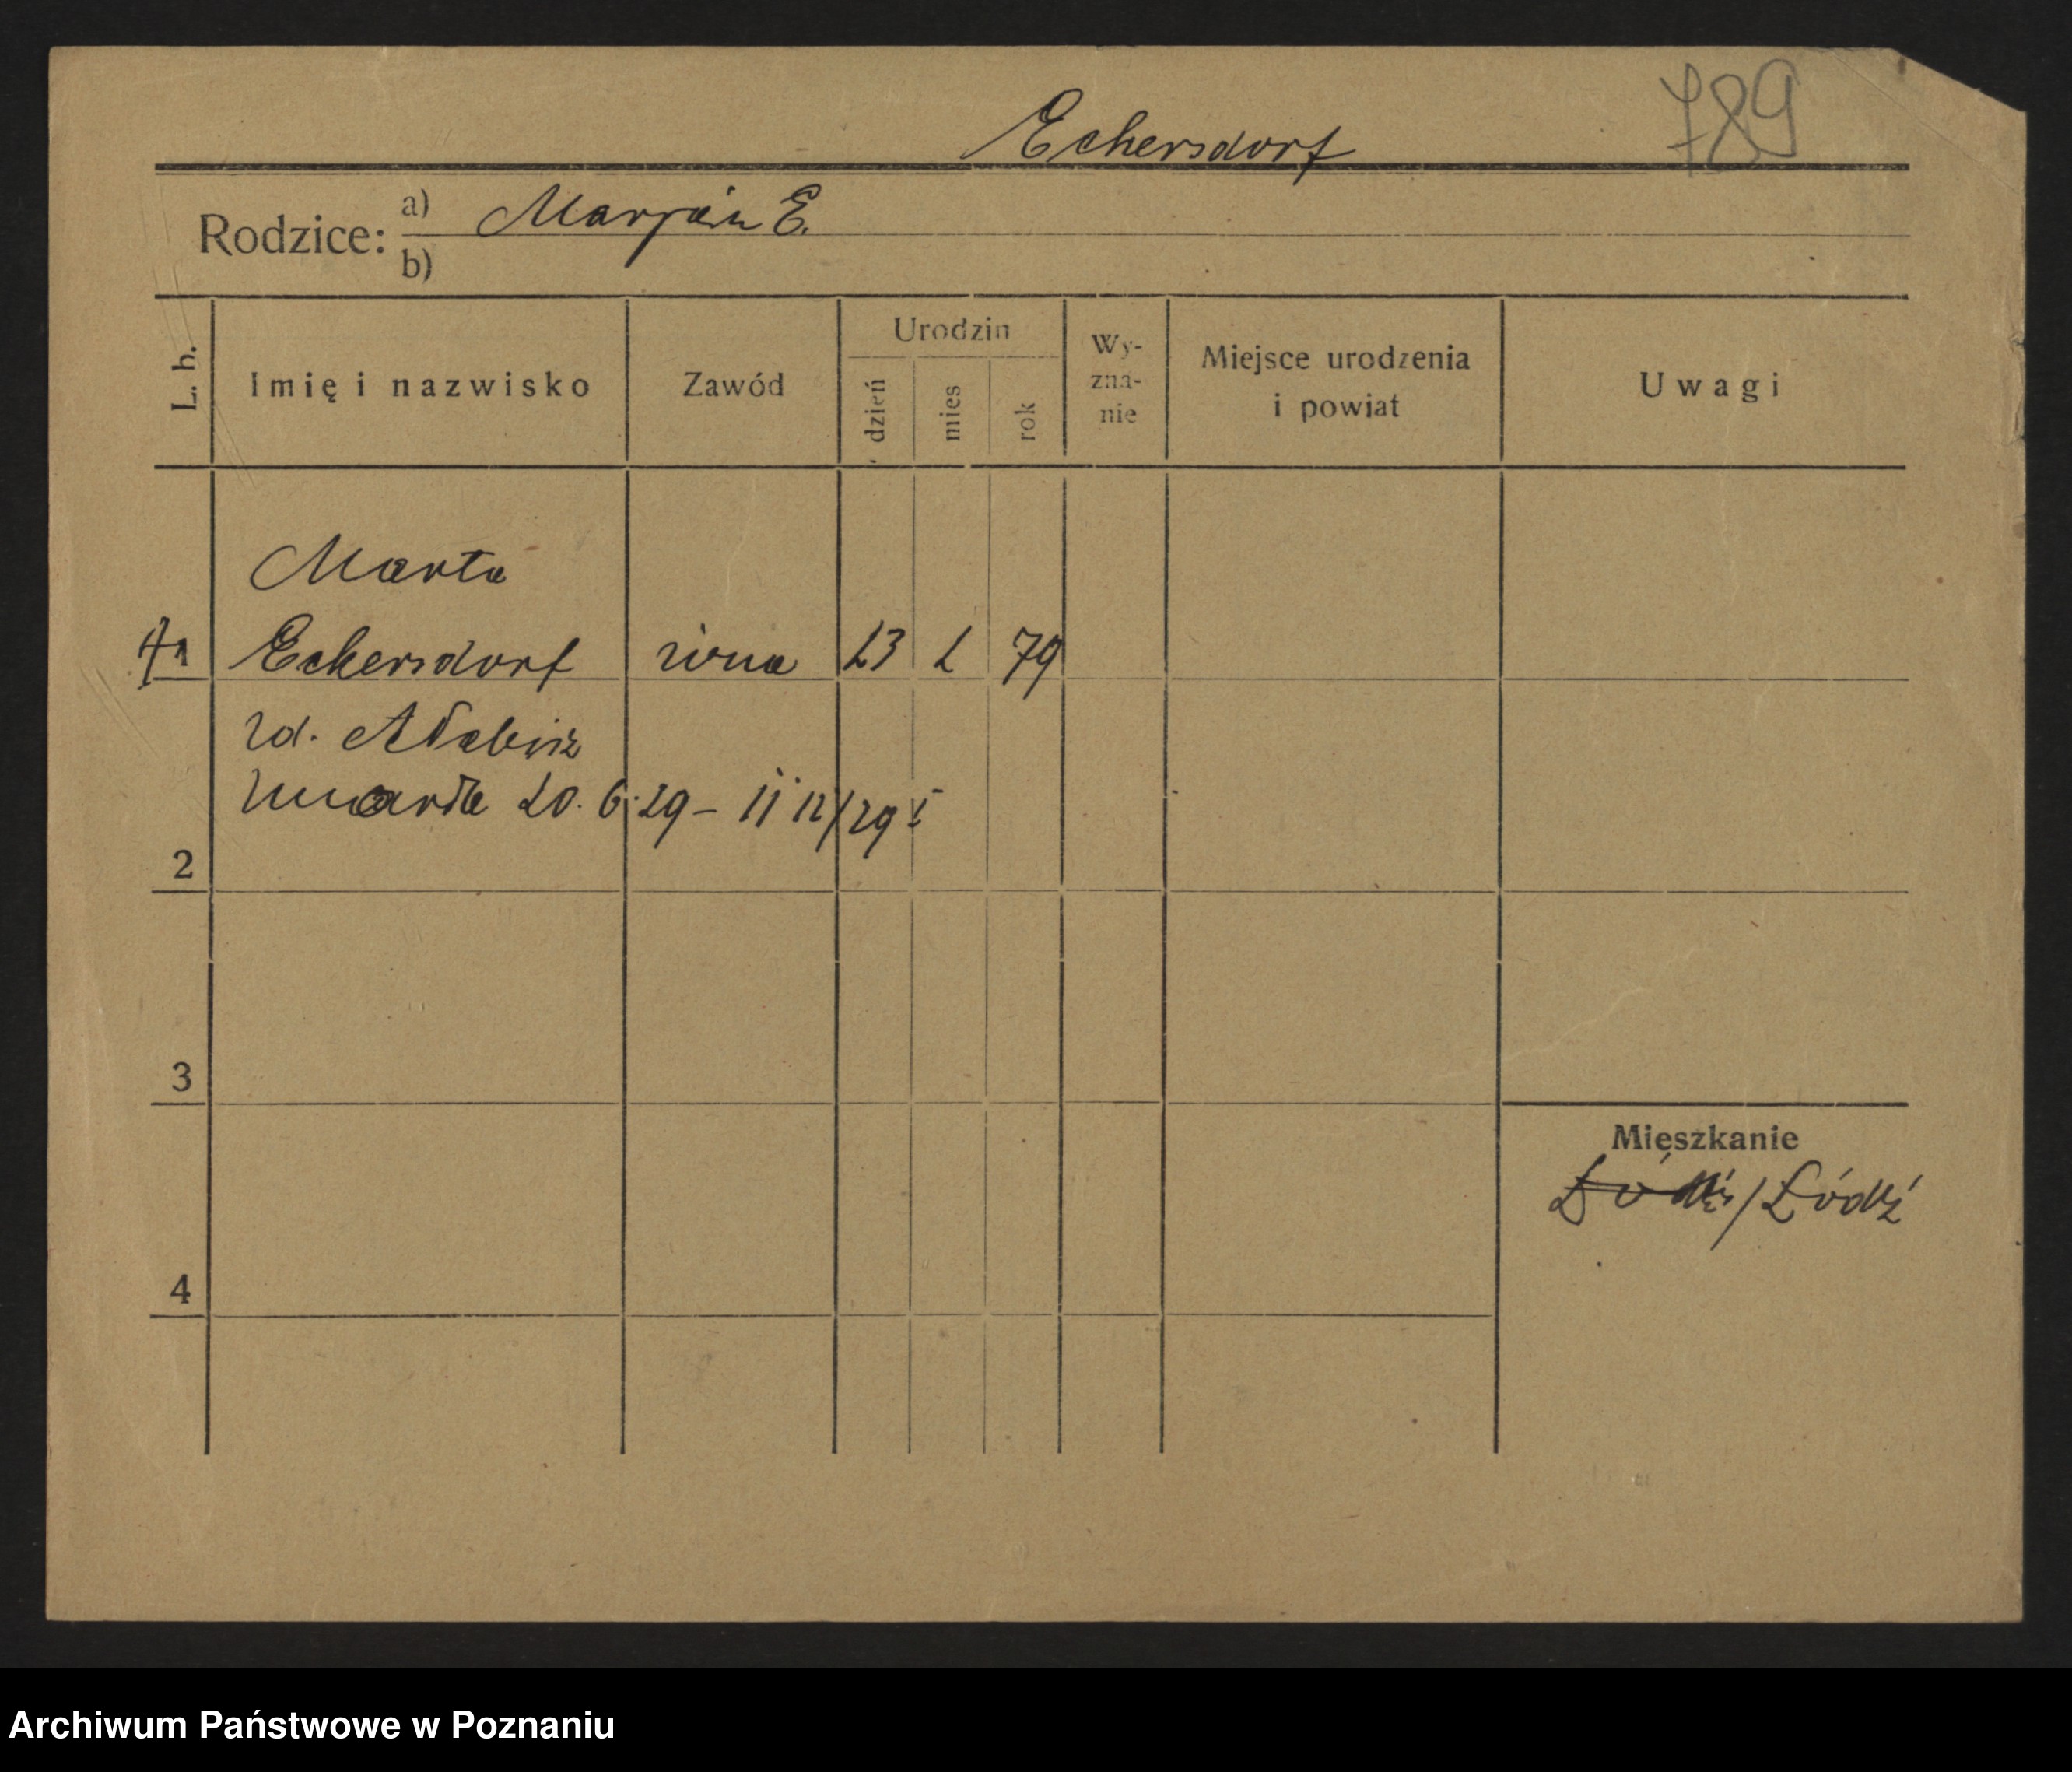 789
Eckersdorf
Rodzice: a) Marjan E.
b)
L. b.
Imię i nazwisko
Zawód
Urodzin
dzień
mies
rok
Wy-
zna-
nie
Miejsce urodzenia
i powiat
Uwagi
Marta
1 Eckersdorf żona 23 2 79
zd.
zmarła 20. 6. 29 – 11 12/29
2
3
4
Mieszkanie
/Łódź
Archiwum Państwowe w Poznaniu